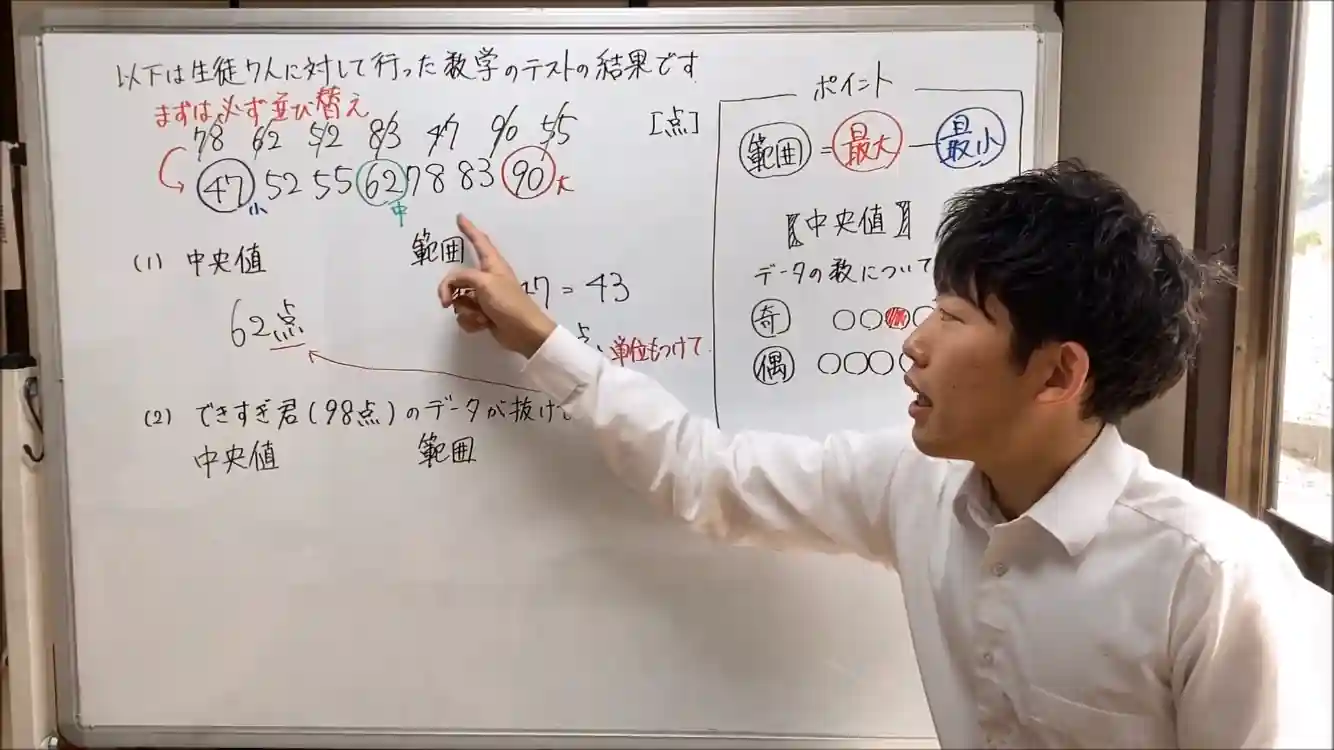 以下は生徒7人に対して行った数学のテストの結果です
まずは必ず並び替え
78 62 52 83 47 90 55 [点]
47 52 55 62 78 83 90
小 中 大
(1) 中央値 範囲
47 = 43
62点 点
単位もつけて
(2) できすぎ君(98点)のデータが抜けて
中央値 範囲
ポイント
範囲 = 最大 － 最小
〖中央値〗
データの数について
奇 ○○●○
偶 ○○○○